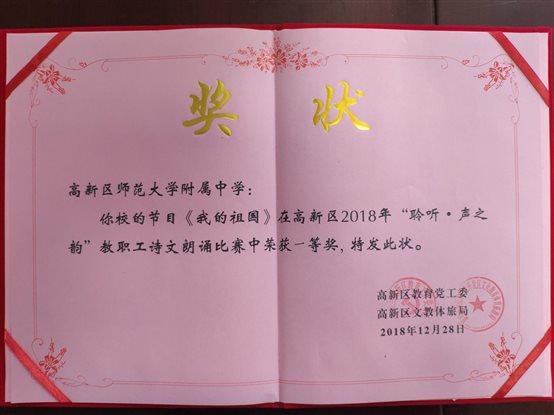 奖状
高新区师范大学附属中学：
你校的节目《我的祖国》在高新区2018年“聆听·声之
韵”教职工诗文朗诵比赛中荣获一等奖，特发此状。
高新区教育党工委
高新区文教体旅局
2018年12月28日